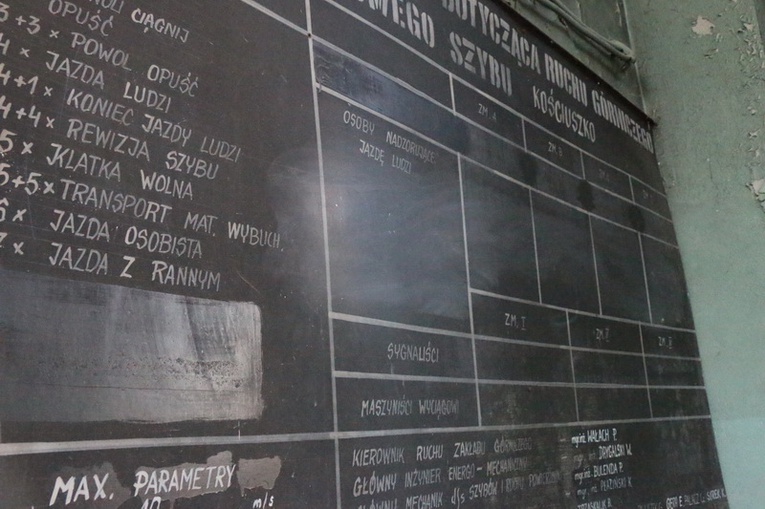 DOTYCZĄCA RUCHU GÓRNICZEGO
SZYBU KOŚCIUSZKO
CIĄGNIJ
3+3 × OPUŚĆ
4 × POWOL OPUŚĆ
4+1 × JAZDA LUDZI
4+4 × KONIEC JAZDY LUDZI
5 × REWIZJA SZYBU
5+5 × KLATKA WOLNA
6 × TRANSPORT MAT. WYBUCH.
7 × JAZDA OSOBISTA
JAZDA Z RANNYM
MAX. PARAMETRY
m/s
OSOBY NADZORUJĄCE
JAZDĘ LUDZI
ZM. A.
ZM. B.
ZM. I
ZM. II
ZM. III
SYGNALIŚCI
MASZYNIŚCI WYCIĄGOWI
KIEROWNIK RUCHU ZAKŁADU GÓRNICZEGO - mgr inż. WAŁACH P.
GŁÓWNY INŻYNIER ENERGO - MECHANICZNY - mgr inż. DRYGALSKI W.
GŁÓWNY MECHANIK d/s SZYBÓW I - mgr inż. BULENDA P.